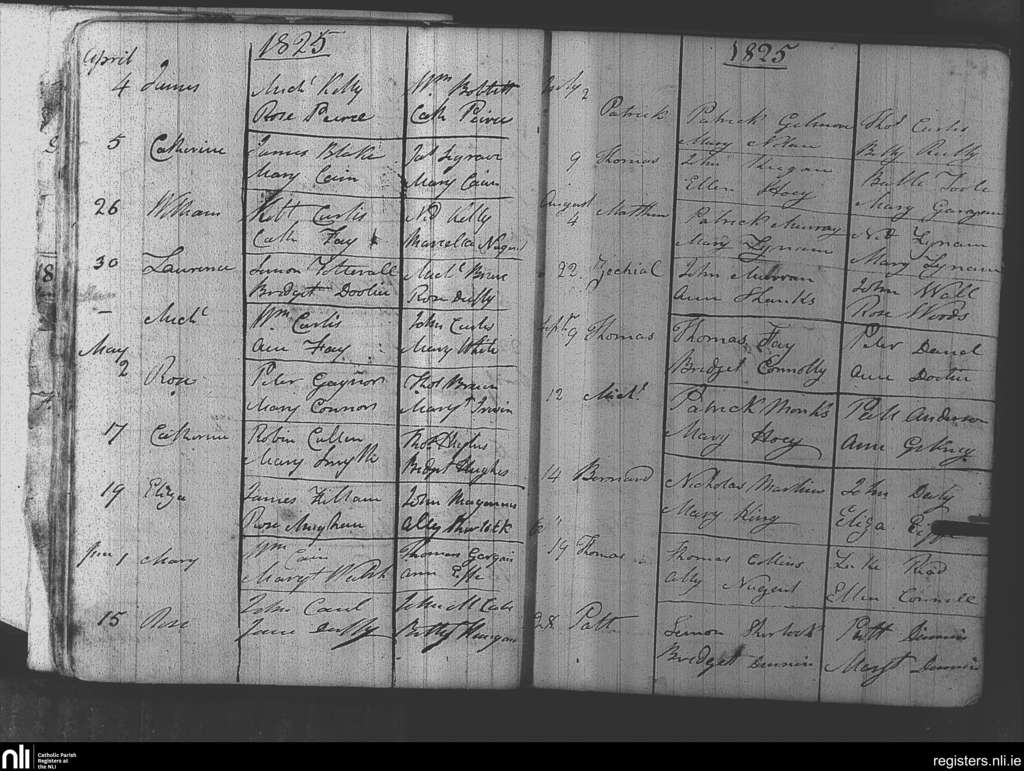 1825
April
4 James Mich^l Kelly W^m Boltitt
Rose Peirce Cath Peirce
5 Catherine James Blake Ja^s Segrave
Mary Cain Mary Cain
26 William Rob^t Curtis Ned Kelly
Cath Fay Marcella Nugent
30 Laurence Simon Tottervall Mich^l
Bridget Doolin Rose Duffy
– Mich^l W^m Curtis John Curtis
Ann Fay Mary White
May
2 Rose Peter Gaynor Tho^s
Mary Connors Marg^t Irwin
17 Catherine Robin Cullen Tho^s Hughes
Mary Smyth Bridget Hughes
19 Eliza James Killam John Magennis
Rose Ally Sherlock
June 1 Mary W^m Cain Thomas Gargan
Marg^t Walsh Ann
15 Rose John Caul John
Jane Duffy Betty
1825
July 2
Patrick Patrick Gilmore Tho^s Curtis
Mary Nolan Billy Reilly
9 Thomas John Bartle Toole
Ellen Hoey Mary
August
4 Matthew Patrick Murray Ned Lynam
Mary Lynam Mary Lynam
22. Zechial John John Wall
Ann Shanks Rose Woods
Sept^r 9 Thomas Thomas Fay Peter Daniel
Bridget Connolly Ann Doolin
12 Mich^l Patrick Monks Patt Anderson
Mary Hoey Ann
14 Bernard Nicholas Martins John Daly
Mary King Eliza
19 Thomas Thomas Collins Luke
Ally Nugent Ellen Connell
28 Patt Simon Sherlock Patt Dunnin
Bridgett Dunnin Marg^t Dunnin
nli Catholic Parish
Registers at
the NLI
registers.nli.ie